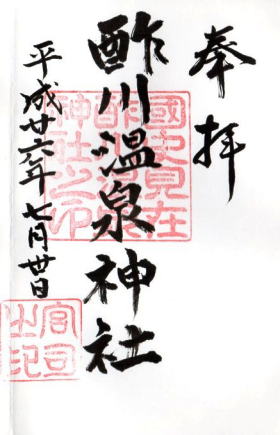 奉拝
酢川温泉神社
平成廿六年七月廿日
國史見在
酢川温泉
神社之印
宮司之印